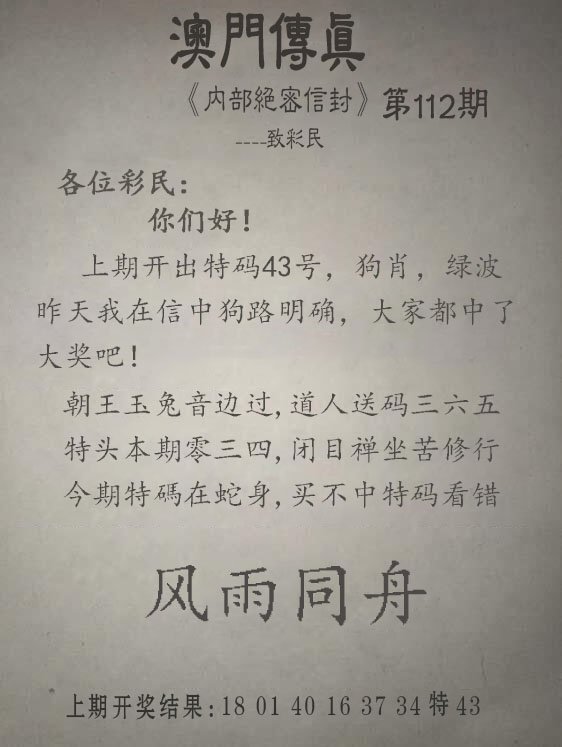 澳門傳真
《内部絕密信封》第112期
----致彩民
各位彩民：
你们好！
上期开出特码43号，狗肖，绿波
昨天我在信中狗路明确，大家都中了
大奖吧！
朝王玉兔音边过,道人送码三六五
特头本期零三四,闭目禅坐苦修行
今期特碼在蛇身,买不中特码看错
风雨同舟
上期开奖结果:18 01 40 16 37 34 特 43